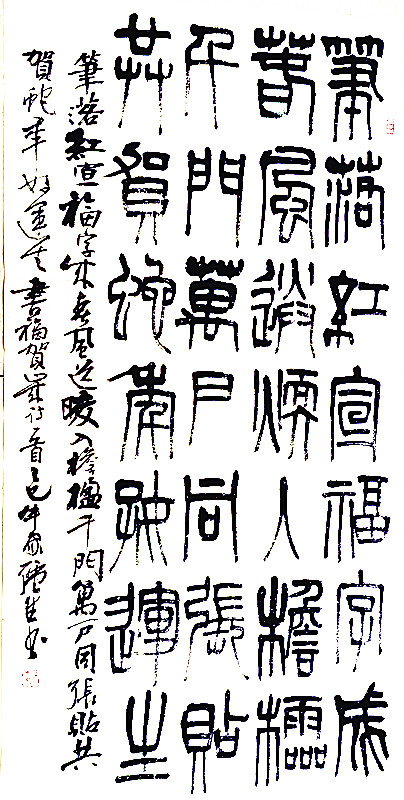 筆落紅宣福字成
春風送煗入檐楹
千門萬戶同張貼
共賀蛇年好運生
筆落紅宣福字成春風送暖入檐楹千門萬戶同張貼共
賀蛇年好運生 書福賀歲詩一首乙巳年